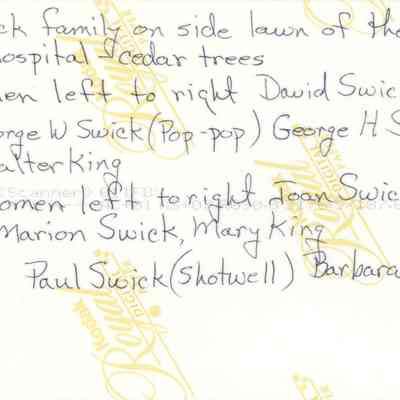 ck family on side lawn of the
hospital - cedar trees
men left to right David Swic
orge W Swick (Pop-pop) George H S
alter King
omen left to right Joan Swic
Marion Swick, Mary King
Paul Swick (Shotwell) Barbara